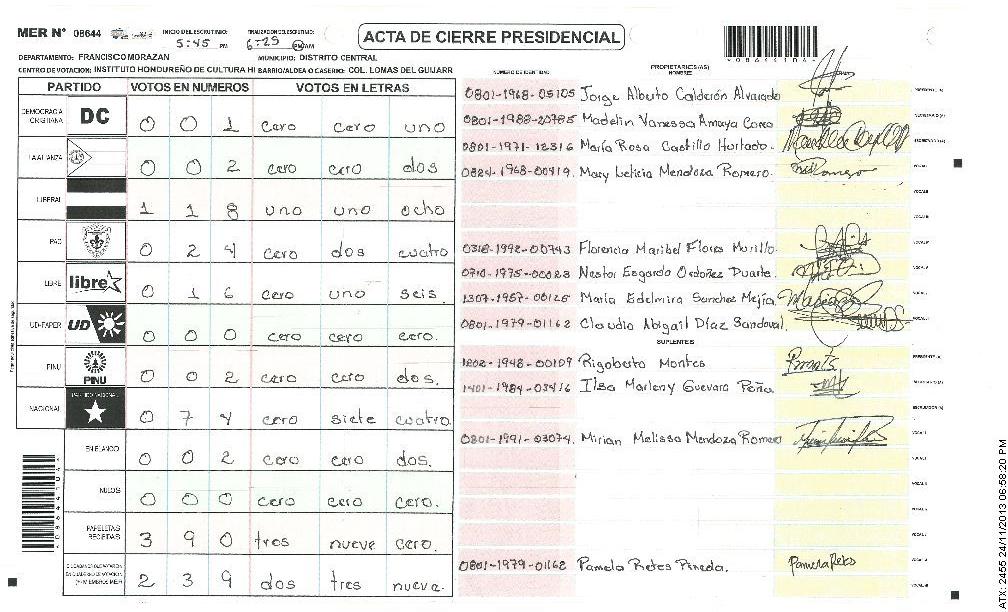 MER N° 08644
INICIO DEL ESCRUTINIO:
5:45 PM
FINALIZACION DEL ESCRUTINIO:
6-25 PM AM
ACTA DE CIERRE PRESIDENCIAL
DEPARTAMENTO: FRANCISCO MORAZAN MUNICIPIO: DISTRITO CENTRAL
CENTRO DE VOTACION: INSTITUTO HONDUREÑO DE CULTURA HI BARRIO/ALDEA O CASERIO: COL. LOMAS DEL GUIJARR
PARTIDO VOTOS EN NUMEROS VOTOS EN LETRAS
DEMOCRACIA CRISTIANA DC 0 0 1 cero cero uno
LA ALIANZA 0 0 2 cero cero dos
LIBERAL 1 1 8 uno uno ocho
PAC 0 2 4 cero dos cuatro
LIBRE libre 0 1 6 cero uno seis.
UD-FAPER UD 0 0 0 cero cero cero.
PINU PINU 0 0 2 cero cero dos.
NACIONAL PARTIDO NACIONAL 0 7 4 cero siete cuatro
EN BLANCO 0 0 2 cero cero dos.
NULOS 0 0 0 cero cero cero.
PAPELETAS RECIBIDAS 3 9 0 tres nueve cero.
2 3 9 dos tres nueve.
NUMERO DE IDENTIDAD
PROPIETARIOS(AS)
NOMBRE
0801-1968-05105 Jorge Alberto Calderón Alvarado
0801-1988-20785 Madelin Vanessa Amaya
0801-1971-12316 María Rosa Castillo Hurtado.
0824-1968-00419. Mary Leticia Mendoza Romero.
0318-1992-00743 Florencia Maribel Flores Murillo
0710-1975-00028 Nestor Esgardo Ordoñez Duarte.
1307-1957-00125 María Edelmira Sanchez Mejía.
0801-1979-01162 Claudia Abigail Díaz Sandoval.
SUPLENTES
1202-1948-00109 Rigoberto Montes
1401-1984-03416 Ilsa Marleny Guevara Peña.
0801-1991-03074. Mirian Melissa Mendoza Romero
0801-1979-01162 Pamela Retes Pineda.
Pamela Retes
ATX: 2455 24/11/2013 06:58:20 PM